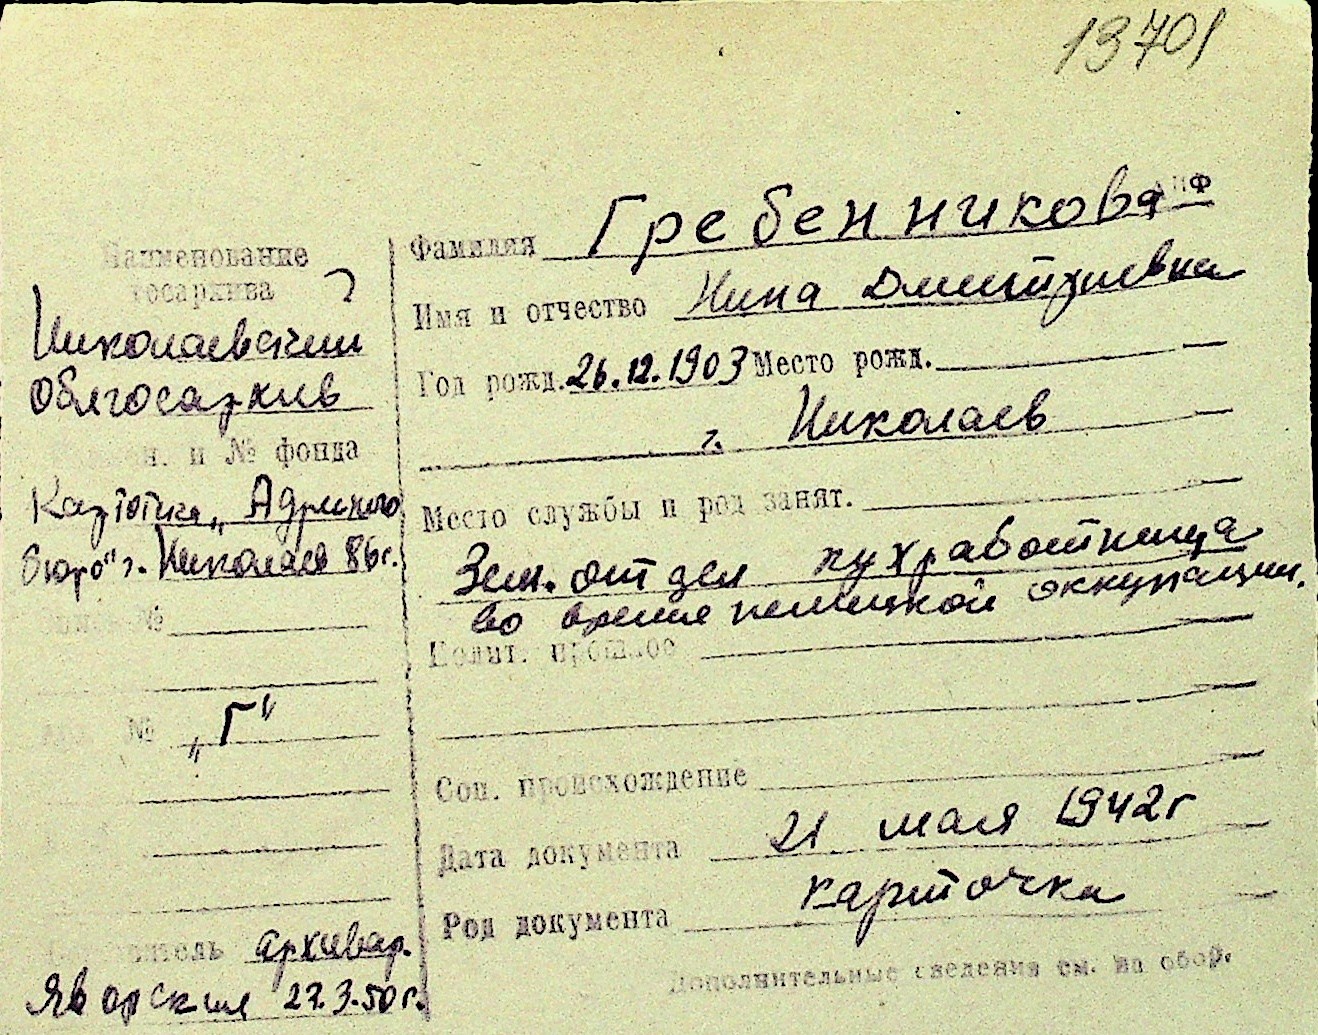 13701
Фамилия Гребенникова
Имя и отчество Нина Дмитриевна
Год рожд. 26.12.1903 Место рожд.
г. Николаев
Место службы и род занят.
Зем. отдел кухработница
во время немецкой оккупации.
Полит. прошлое
Соц. происхождение
Дата документа 21 мая 1942 г
Род документа карточка
Дополнительные сведения см. на обор.
Наименование
госархива
Николаевский
Облгосархив
н. и № фонда
Картотека „Адресного
бюро" г. Николаев
№
№ „Г"
архивар.
Яворская 27.3.50 г.